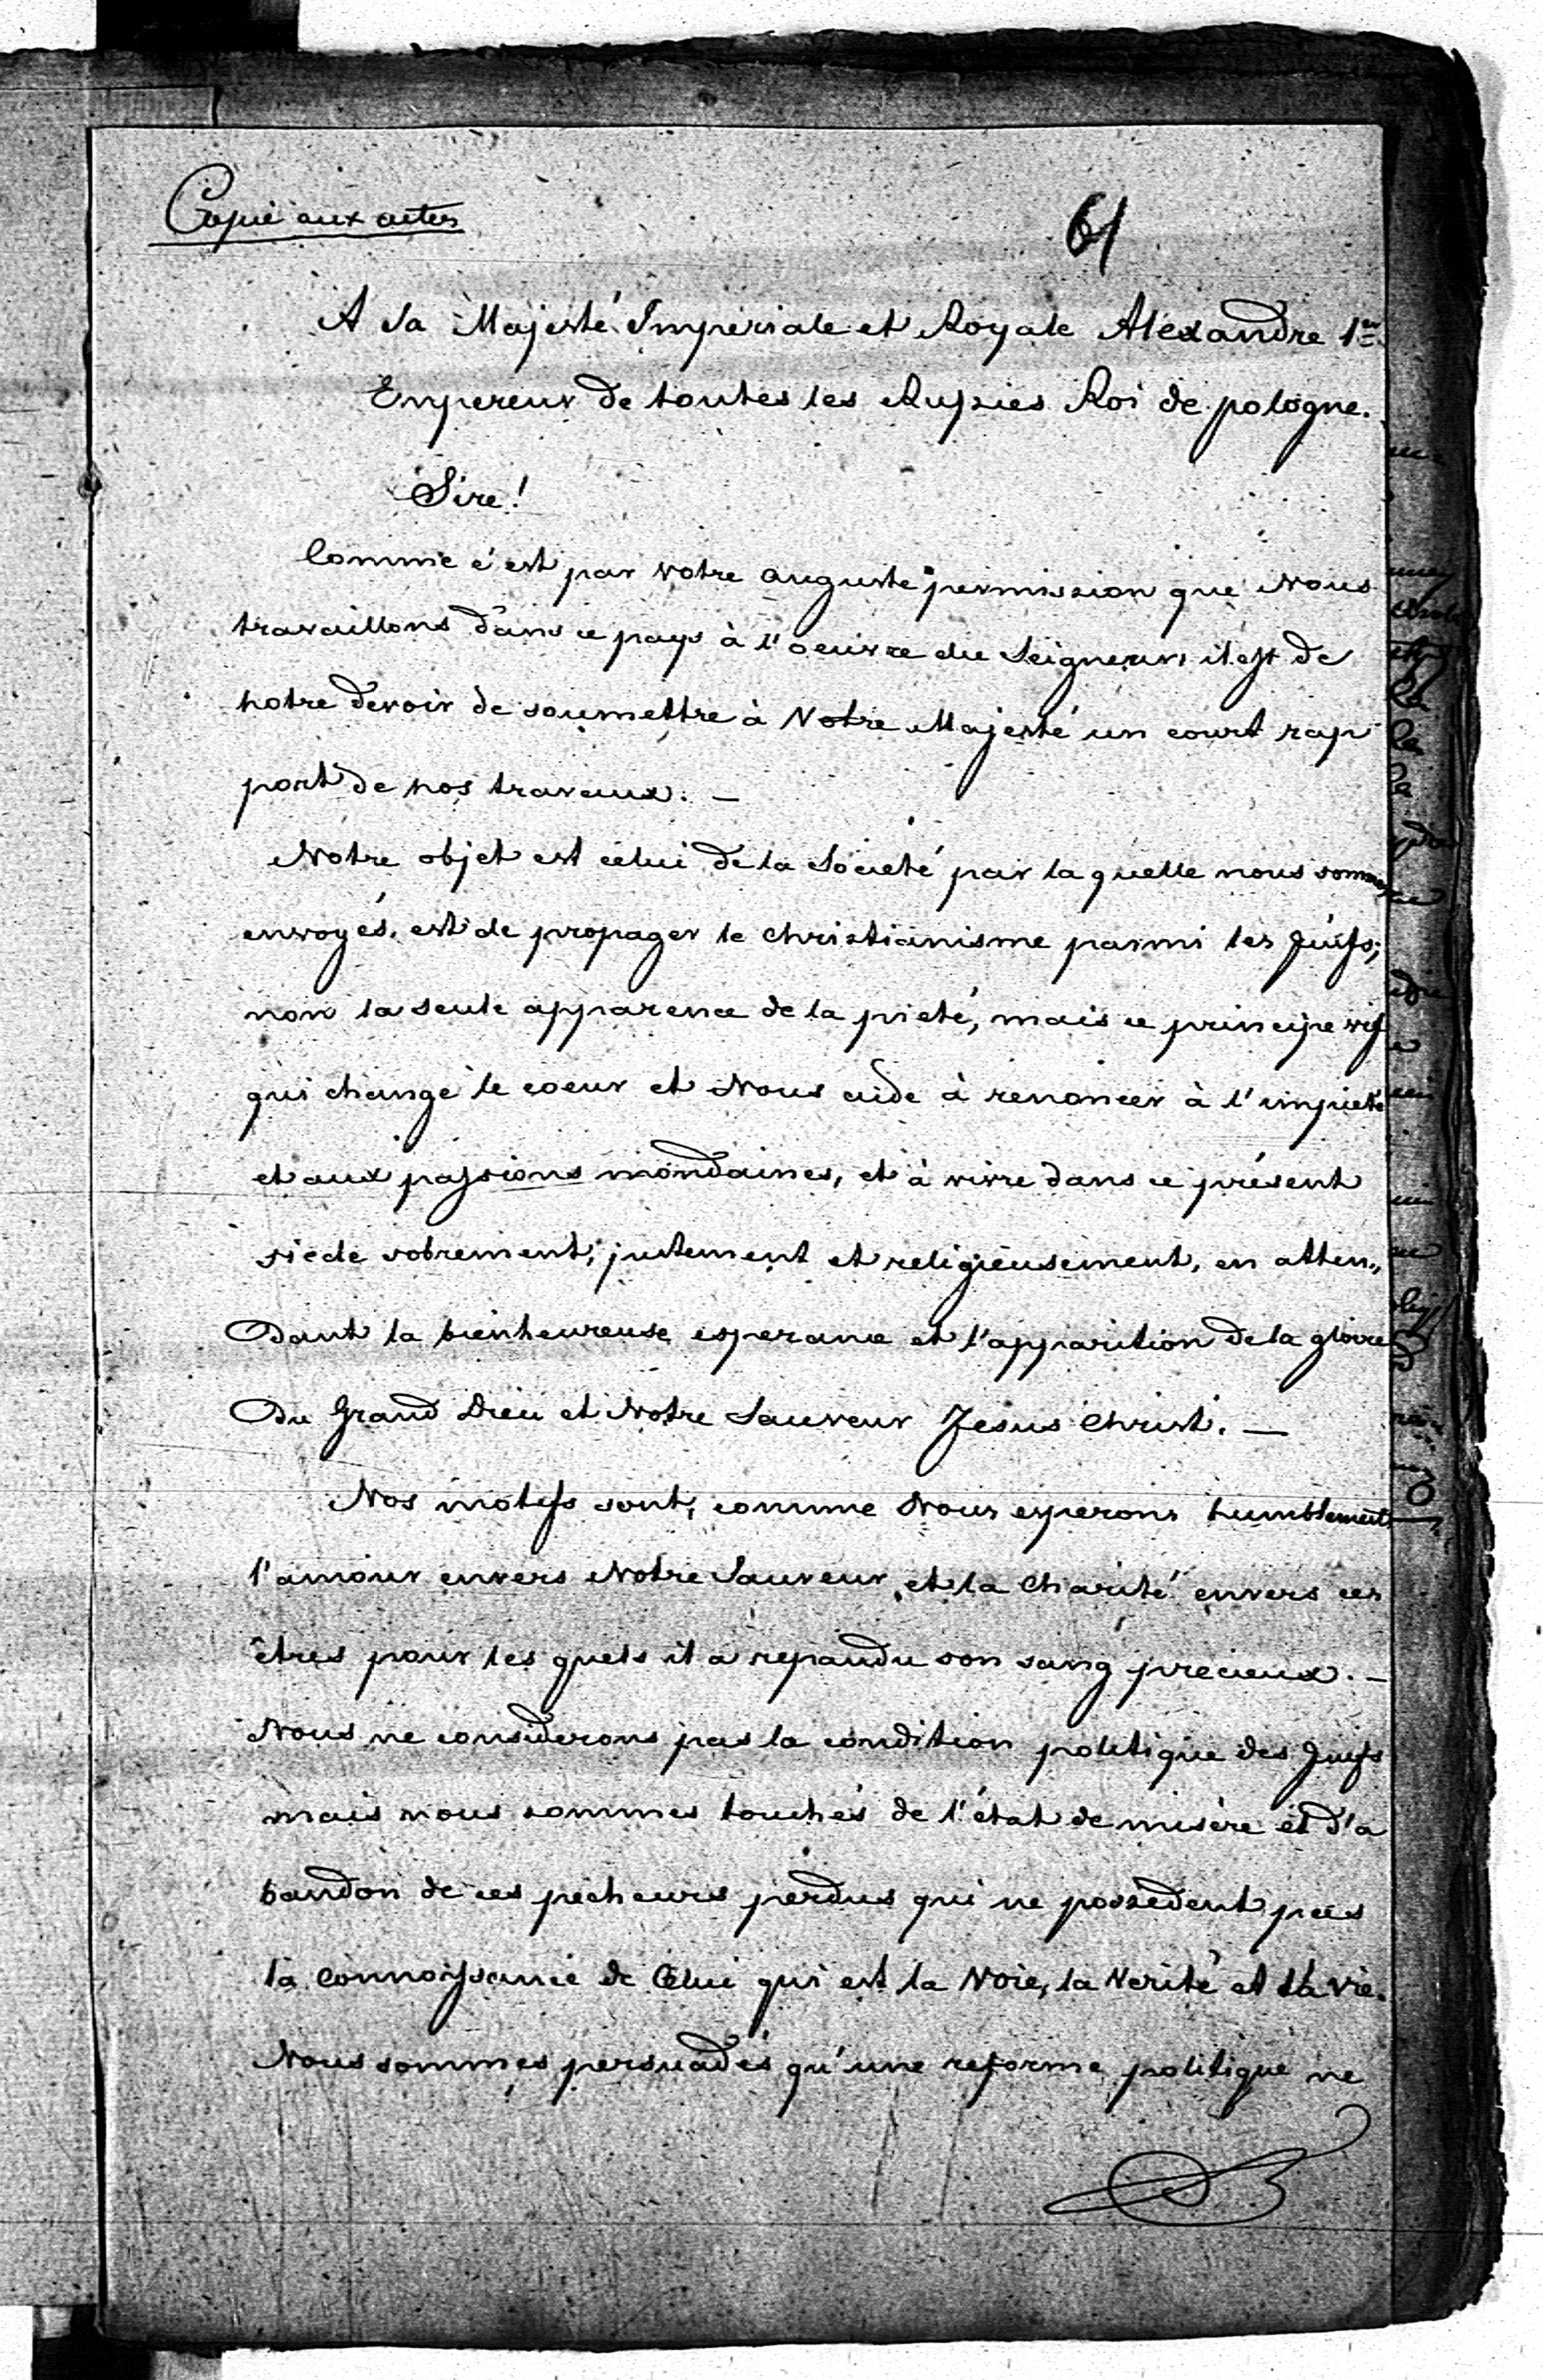 Copie aux actes
61
A Sa Majesté Impériale et Royale Alexandre 1er
Empereur de toutes les Russies Roi de pologne.
Sire!
Comme c'est par votre auguste permission que Nous
travaillons dans ce pays à l'oeuvre du Seigneur, il est de
notre devoir de soumettre à Votre Majesté un court rap
port de nos travaux. —
Notre objet est celui de la Societé par la quelle nous sommes
envoyés, est de propager le christianisme parmi les Juifs;
non la seule apparence de la pieté, mais ce principe vif
qui change le coeur et Nous aide à renoncer à l'impieté
et aux passions mondaines, et à vivre dans ce présent
siècle sobrement, justement et religieusement, en atten„
dant la bienheureuse esperance et l'apparition de la gloire
du Grand Dieu et Notre Sauveur Jesus Christ. —
Nos motifs sont, comme Nous esperons humblement
l'amour envers Notre Sauveur, et la Charité envers ces
êtres pour les quels il a repandu son sang precieux. —
Nous ne considerons pas la condition politique des Juifs
mais nous sommes touchés de l'état de misère et d'a
bandon de ces pecheurs perdus qui ne possedent pas
la connoissance de Celui qui est la Voie, la Verité et la Vie.
Nous sommes persuadés qu'une reforme politique ne